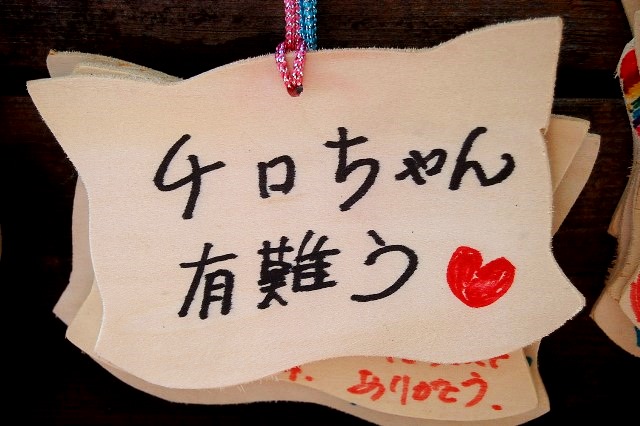 チロちゃん
有難う
ありがとう.